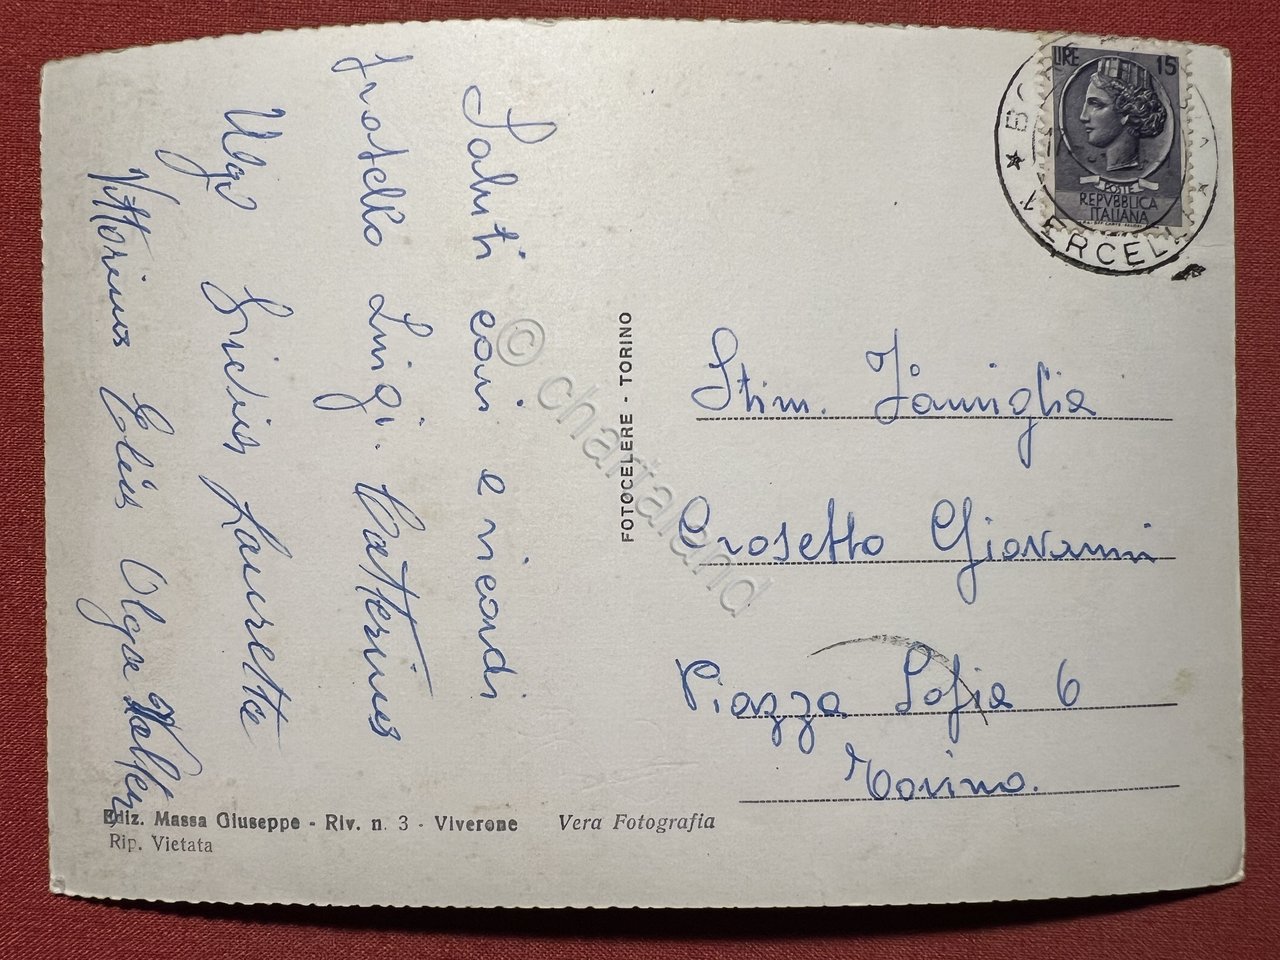 Saluti cari e ricordi
fratello Luigi. Catterina
Ugo Lidia Lauretta
Vittorina Elia Olga Walter
FOTOCELERE - TORINO
LIRE 15
POSTE
REPVBBLICA
ITALIANA
VERCELLI
Stim. Famiglia
Crosetto Giovanni
Piazza Sofia 6
Torino.
Ediz. Massa Giuseppe - Riv. n. 3 - Viverone Vera Fotografia
Rip. Vietata
© chartaland